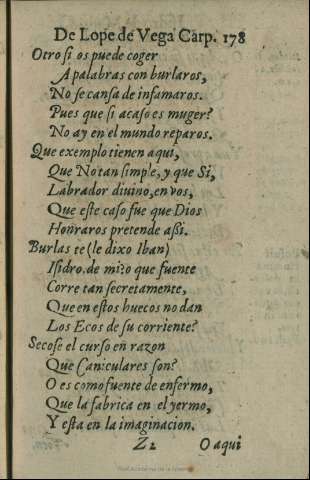 De Lope de Vega Carp. 178
Otro si os puede coger
A palabras con burlaros,
No se cansa de infamaros.
Pues que si acaso es muger?
No ay en el mundo reparos.
Que exemplo tienen aqui,
Que No tan simple, y que Si,
Labrador diuino, en vos,
Que este caso fue que Dios
Honraros pretende aßi.
Burlas te (le dixo Iban)
Isidro, de mi? o que fuente
Corre tan secretamente,
Que en estos huecos no dan
Los Ecos de su corriente?
Secose el curso en razon
Que Caniculares son?
O es como fuente de enfermo,
Que la fabrica en el yermo,
Y esta en la imaginacion.
Z2 O aqui